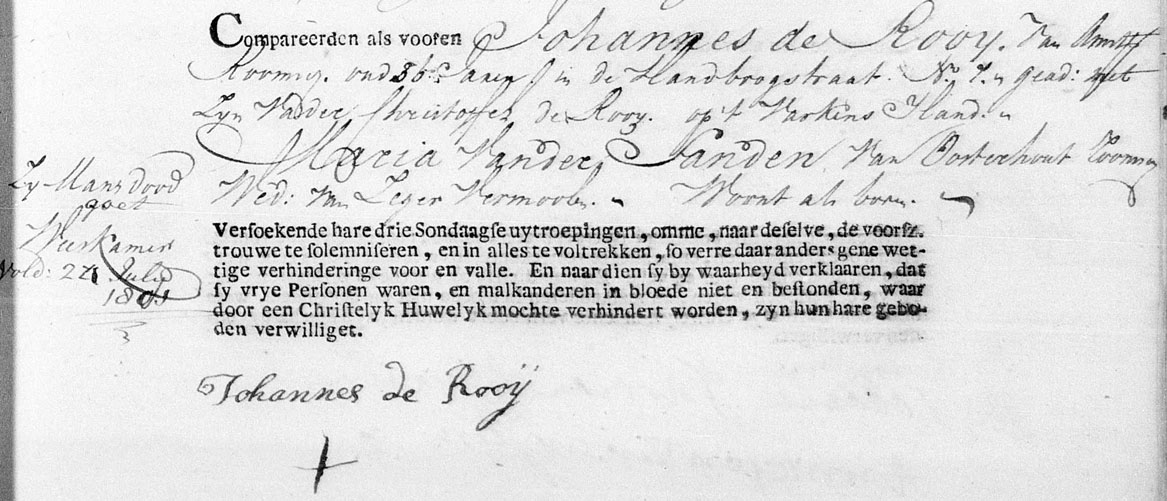 Compareerden als vooren Johannes de Rooy. Van Amstf
Roomsg. oud 36 Jaaren in de Handboogstraat. No 7. gead: met
Zyn Vader Christoffer de Rooy. op't Varkens Iland.
Maria Vander Sanden Van Oosterhout Roomsg
Zy Mans dood Wed: van Leger Vermoolen. Woont als boven.
goet
Weeskamer
Vold: 24 July
1801
Versoekende hare drie Sondaagse uytroepingen, omme, naar deselve, de voorsz.
trouwe te solemniseren, en in alles te voltrekken, so verre daar anders gene wet-
tige verhinderinge voor en valle. En naar dien sy by waarheyd verklaaren, dat
sy vrye Personen waren, en malkanderen in bloede niet en bestonden, waar
door een Christelyk Huwelyk mochte verhindert worden, zyn hun hare gebo-
den verwilliget.
Johannes de Rooij